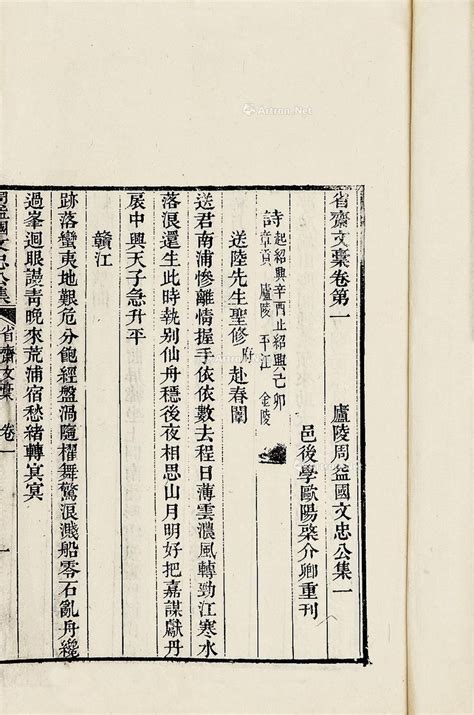 Artron.Net
省齋文稾卷第一
廬陵周益國文忠公集一
邑後學歐陽棨介卿重刊
詩
起紹興辛酉止紹興己卯
章貢 廬陵 平江 金陵
送陸先生聖修府赴春闈
送君南浦慘離情握手依依數去程日薄雲濃風轉勁江寒水
落浪還生此時執别仙舟穩後夜相思山月明好把嘉謀獻丹
扆中興天子急升平
贛江
跡落蠻夷地艱危分飽經盤渦隨櫂舞驚浪濺船零石亂舟纔
過峯迴眼謾青晚來荒浦宿愁緒轉冥冥
周益國文忠公集
省齋文稾
卷一
一